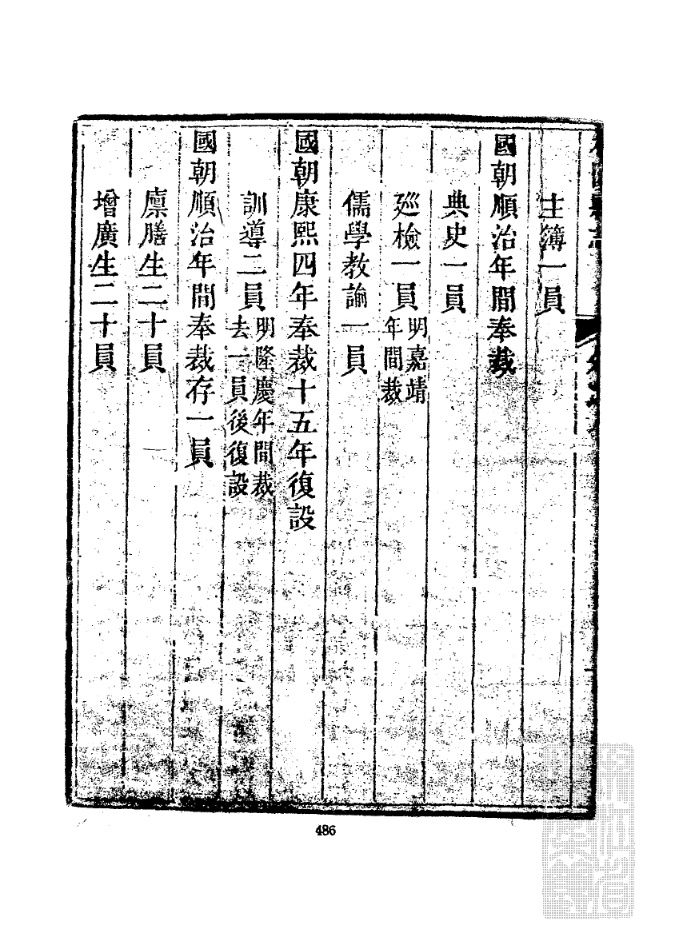 主簿一員
國朝順治年間奉裁
典史一員
廵檢一員明嘉靖年間裁
儒學教諭一員
國朝康熙四年奉裁十五年復設
訓導二員明隆慶年間裁去一員後復設
國朝順治年間奉裁存一員
廪膳生二十員
增廣生二十員
486